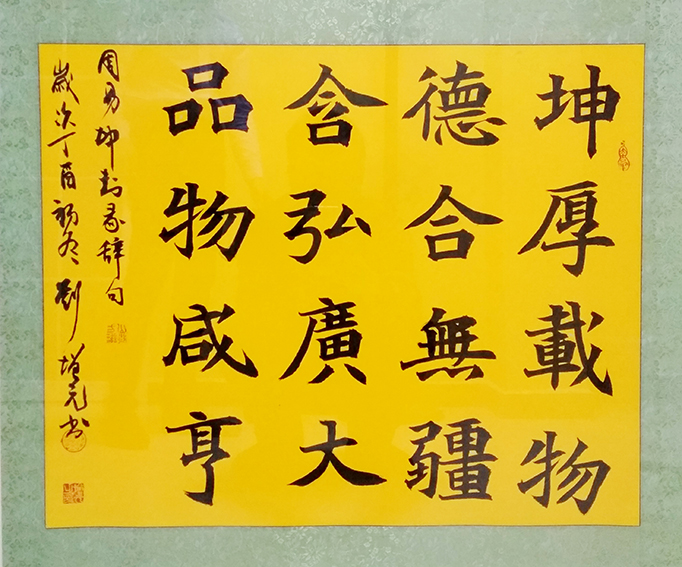 坤厚載物
德合無疆
含弘廣大
品物咸亨
周易坤卦彖辭句
歲次丁酉初冬劉增元书